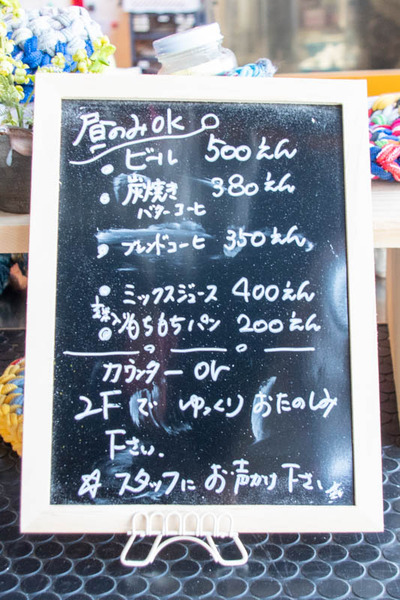 昼のみOK
・ビール 500えん
・炭焼き 380えん
バターコーヒ
・ブレンドコーヒ 350えん
・ミックスジュース 400えん
・もちもちパン 200えん
カウンター or
2Fで ゆっくり おたのしみ
下さい.
☆ スタッフに お声かけ 下さい